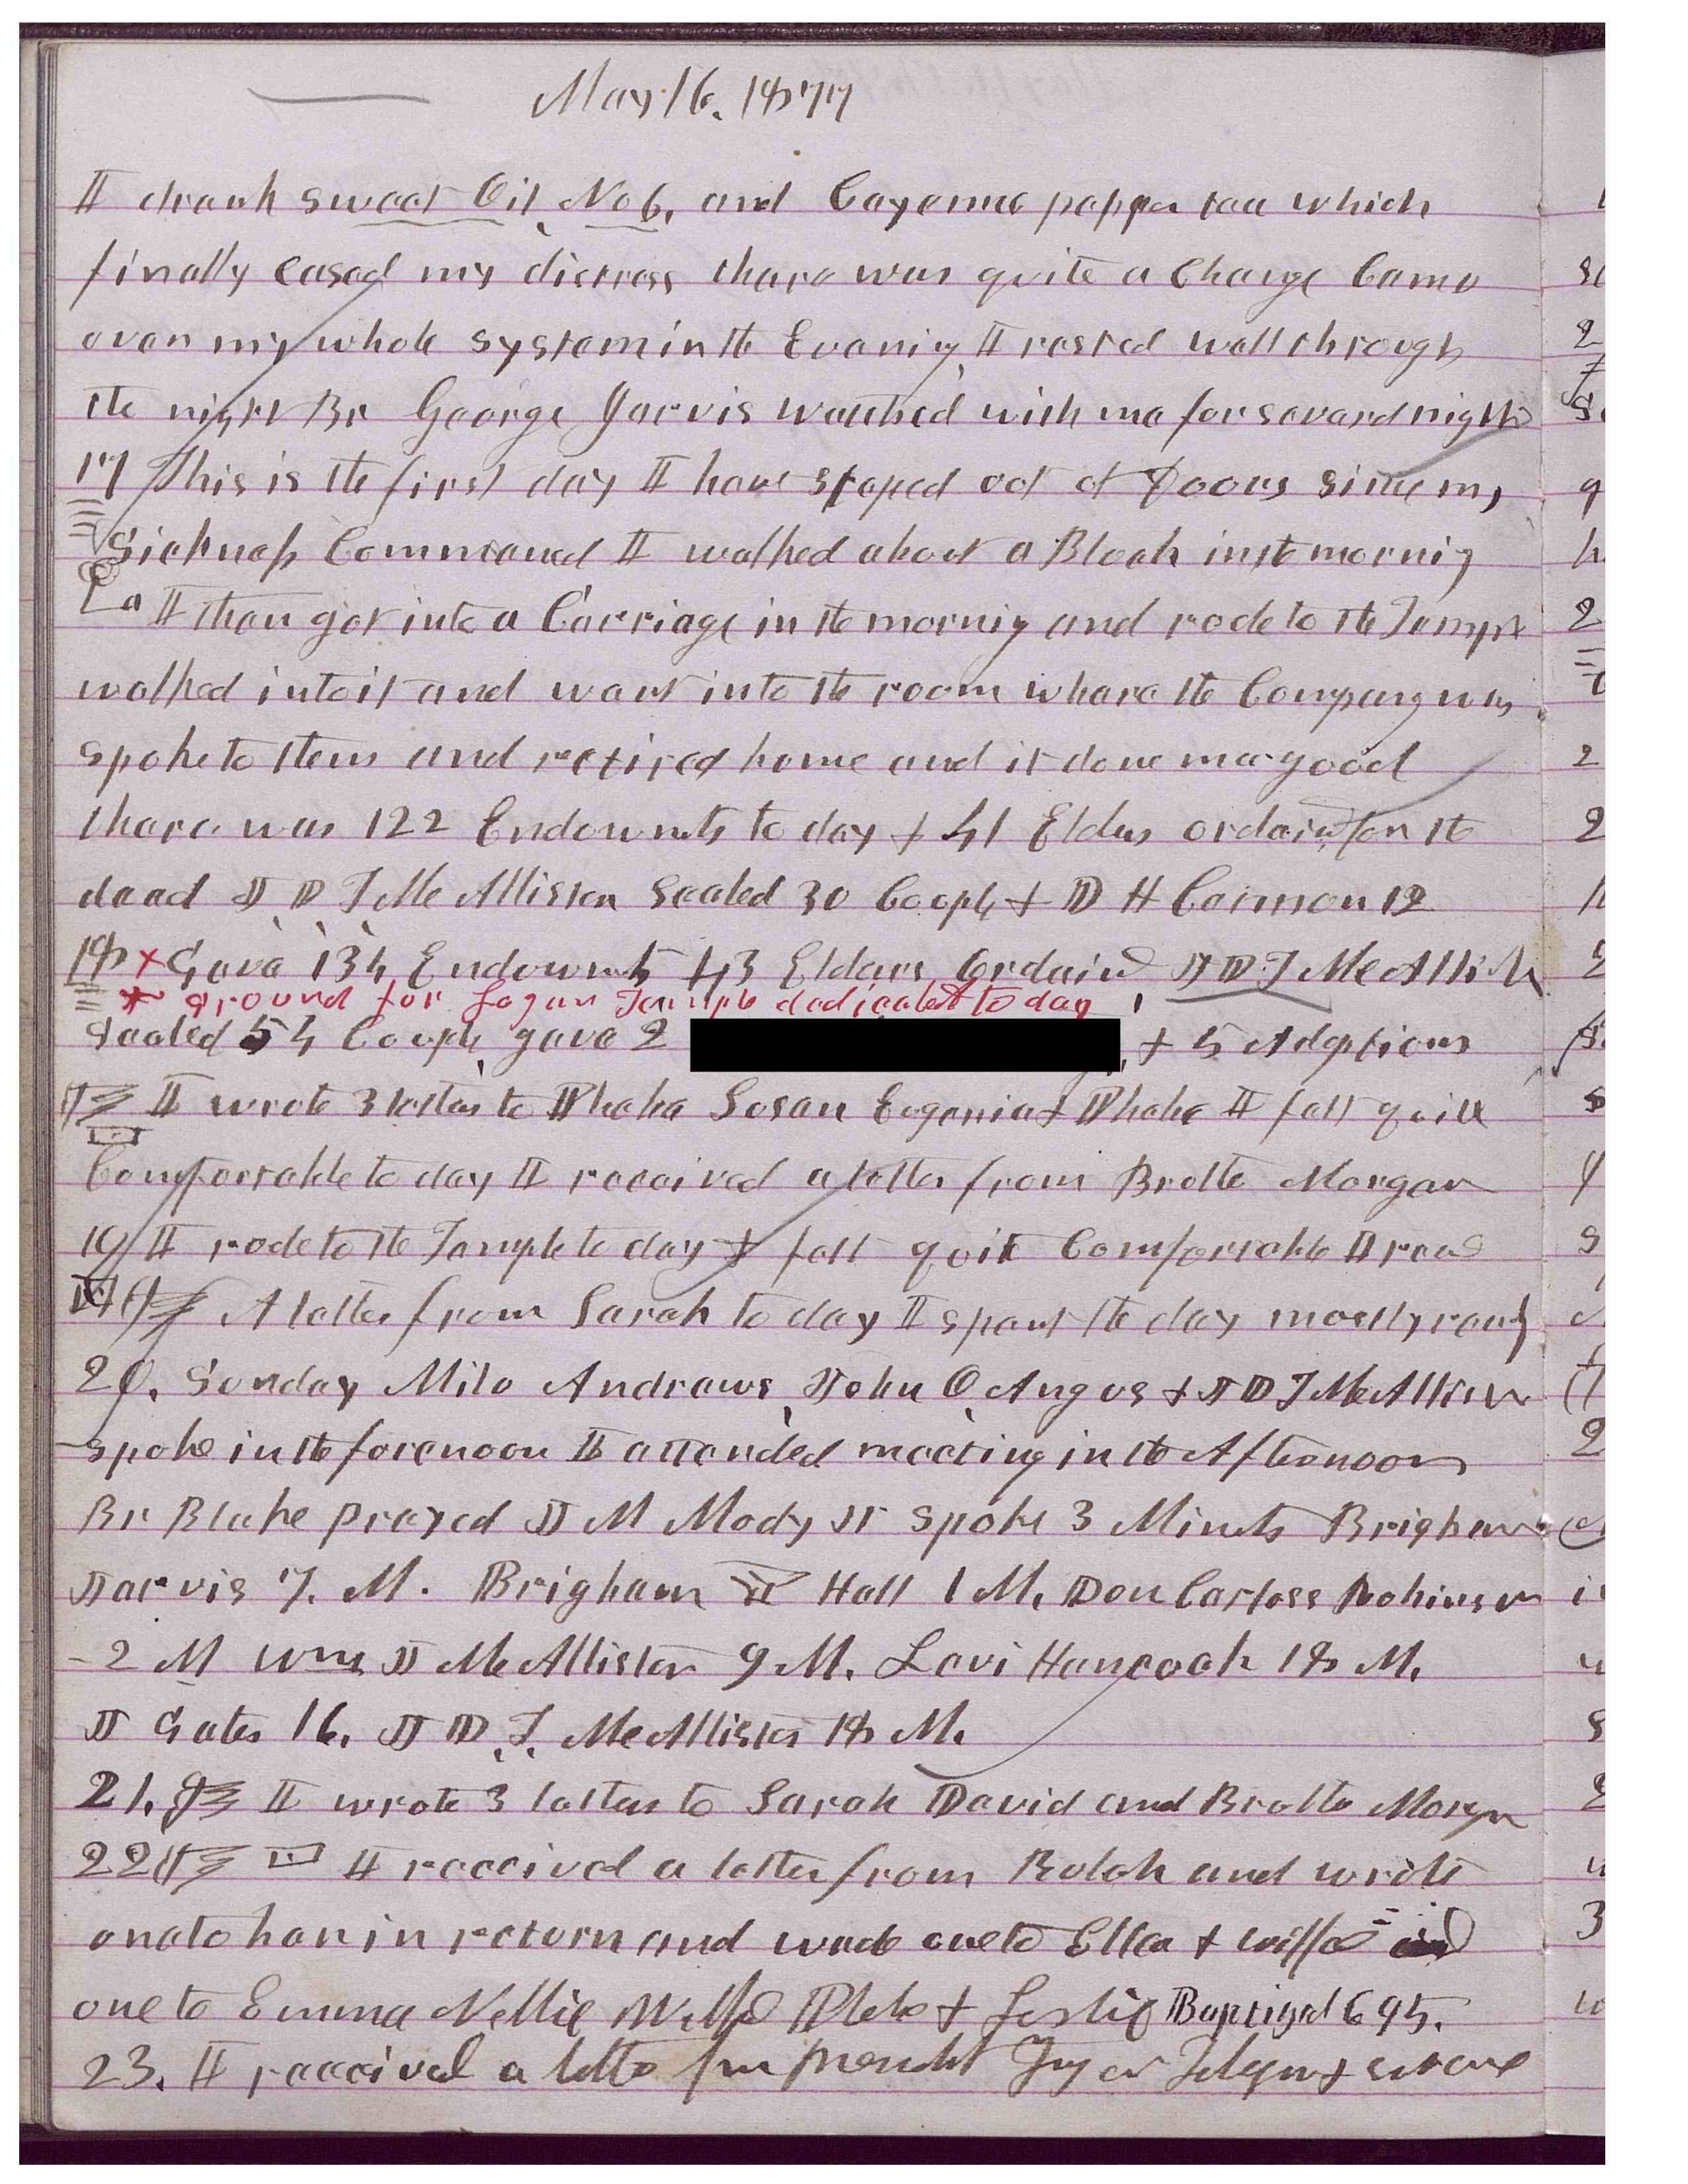 May 16, 1877
I drank sweet Oil, No 6, and Cayenne pepper tea which
finally eased my distress thare was quite a Change Came
over my whole system in the Evening, I rested well through
the night Br George Jarvis watched with me for several nights
17 This is the first day I have stoped out of Doors since my
Sickness Commenced I walked about a Block in the morning
I than got into a Carriage in the morning and rode to the Temple
walked into it and went into the room whare the Company was
spoke to them and retired home and it done me good
thare was 122 Endowmts to day & 41 Elders ordaind for the
dead J D T McAllister Sealed 30 Couple & D H Cannon 12
18 × Gave 134 Endowmts 43 Elders Ordaind J D T McAllister
* ground for Logan Temple dedicated to day
Sealed 54 Couple, gave 2 & 5 Adoptions
I wrote 3 letters to Phebe Susan Eugenia & Phebe I felt quite
Comfortable to day I received a letter from Brotte Morgan
19 I rode to the Temple to day & felt quite Comfortable I recd
A letter from Sarah to day I spent the day mostly
20, Sunday Milo Andraws, John O, Angus & J D T McAllister
spoke in the forenoon I attended meeting in the Afternoon
Br Blake prayed J M Mody Jr spoke 3 Minuts Brigham
Jarvis 7, M. Brigham Y Hall 1 M, Don Carloss Robinson
2 M Wm J McAllister 9 M, Levi Hancock 18 M,
J Gates 16, J D, T, McAllister 18 M,
21, I wrote 3 letters to Sarah David and Brotte Morgn
22 I received a letter from Bulah and wrote
one to her in return and wrote one to Ella &
one to Emma Nellie Phebe & Leslie Baptized 695,
23, I received a lette